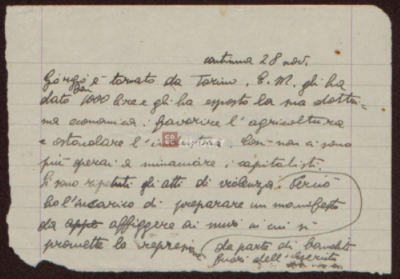 continua 28 nov.
Giorgio è tornato da Torino. E. M. gli ha
dato 1000 lire e gli ha esposto la sua dottri-
na economica: favorire l'agricoltura
e ostacolare l'industria. Così non ci sono
più operai a minacciare i capitalisti.
Si sono ripetuti gli atti di violenza. Perciò
ho l'incarico di preparare un manifesto
da affiggere ai muri in cui si
promette la repressi
da parte di banditi
fuori dell'esercito